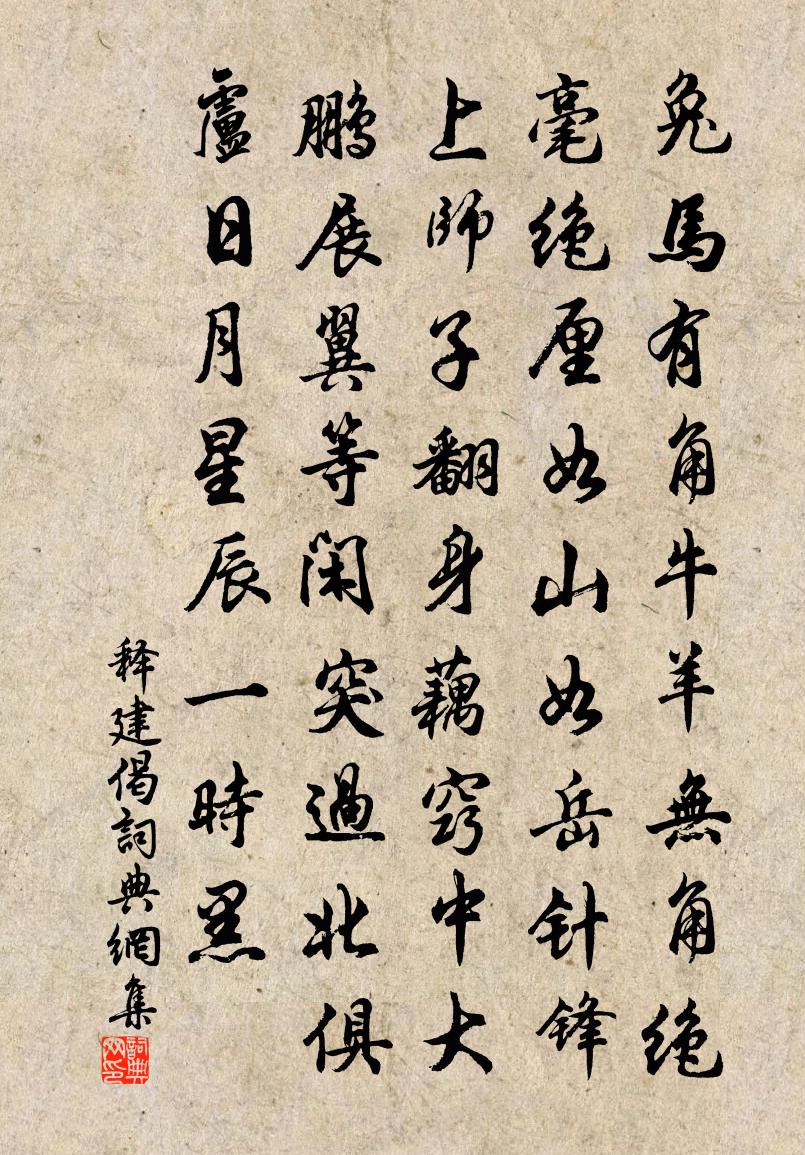 兔馬有角牛羊無角绝
毫绝厘如山如岳针锋
上師子翻身藕窍中大
鹏展翼等闲突過北俱
盧日月星辰一時黑
释建偈詞典網集
詞典网印